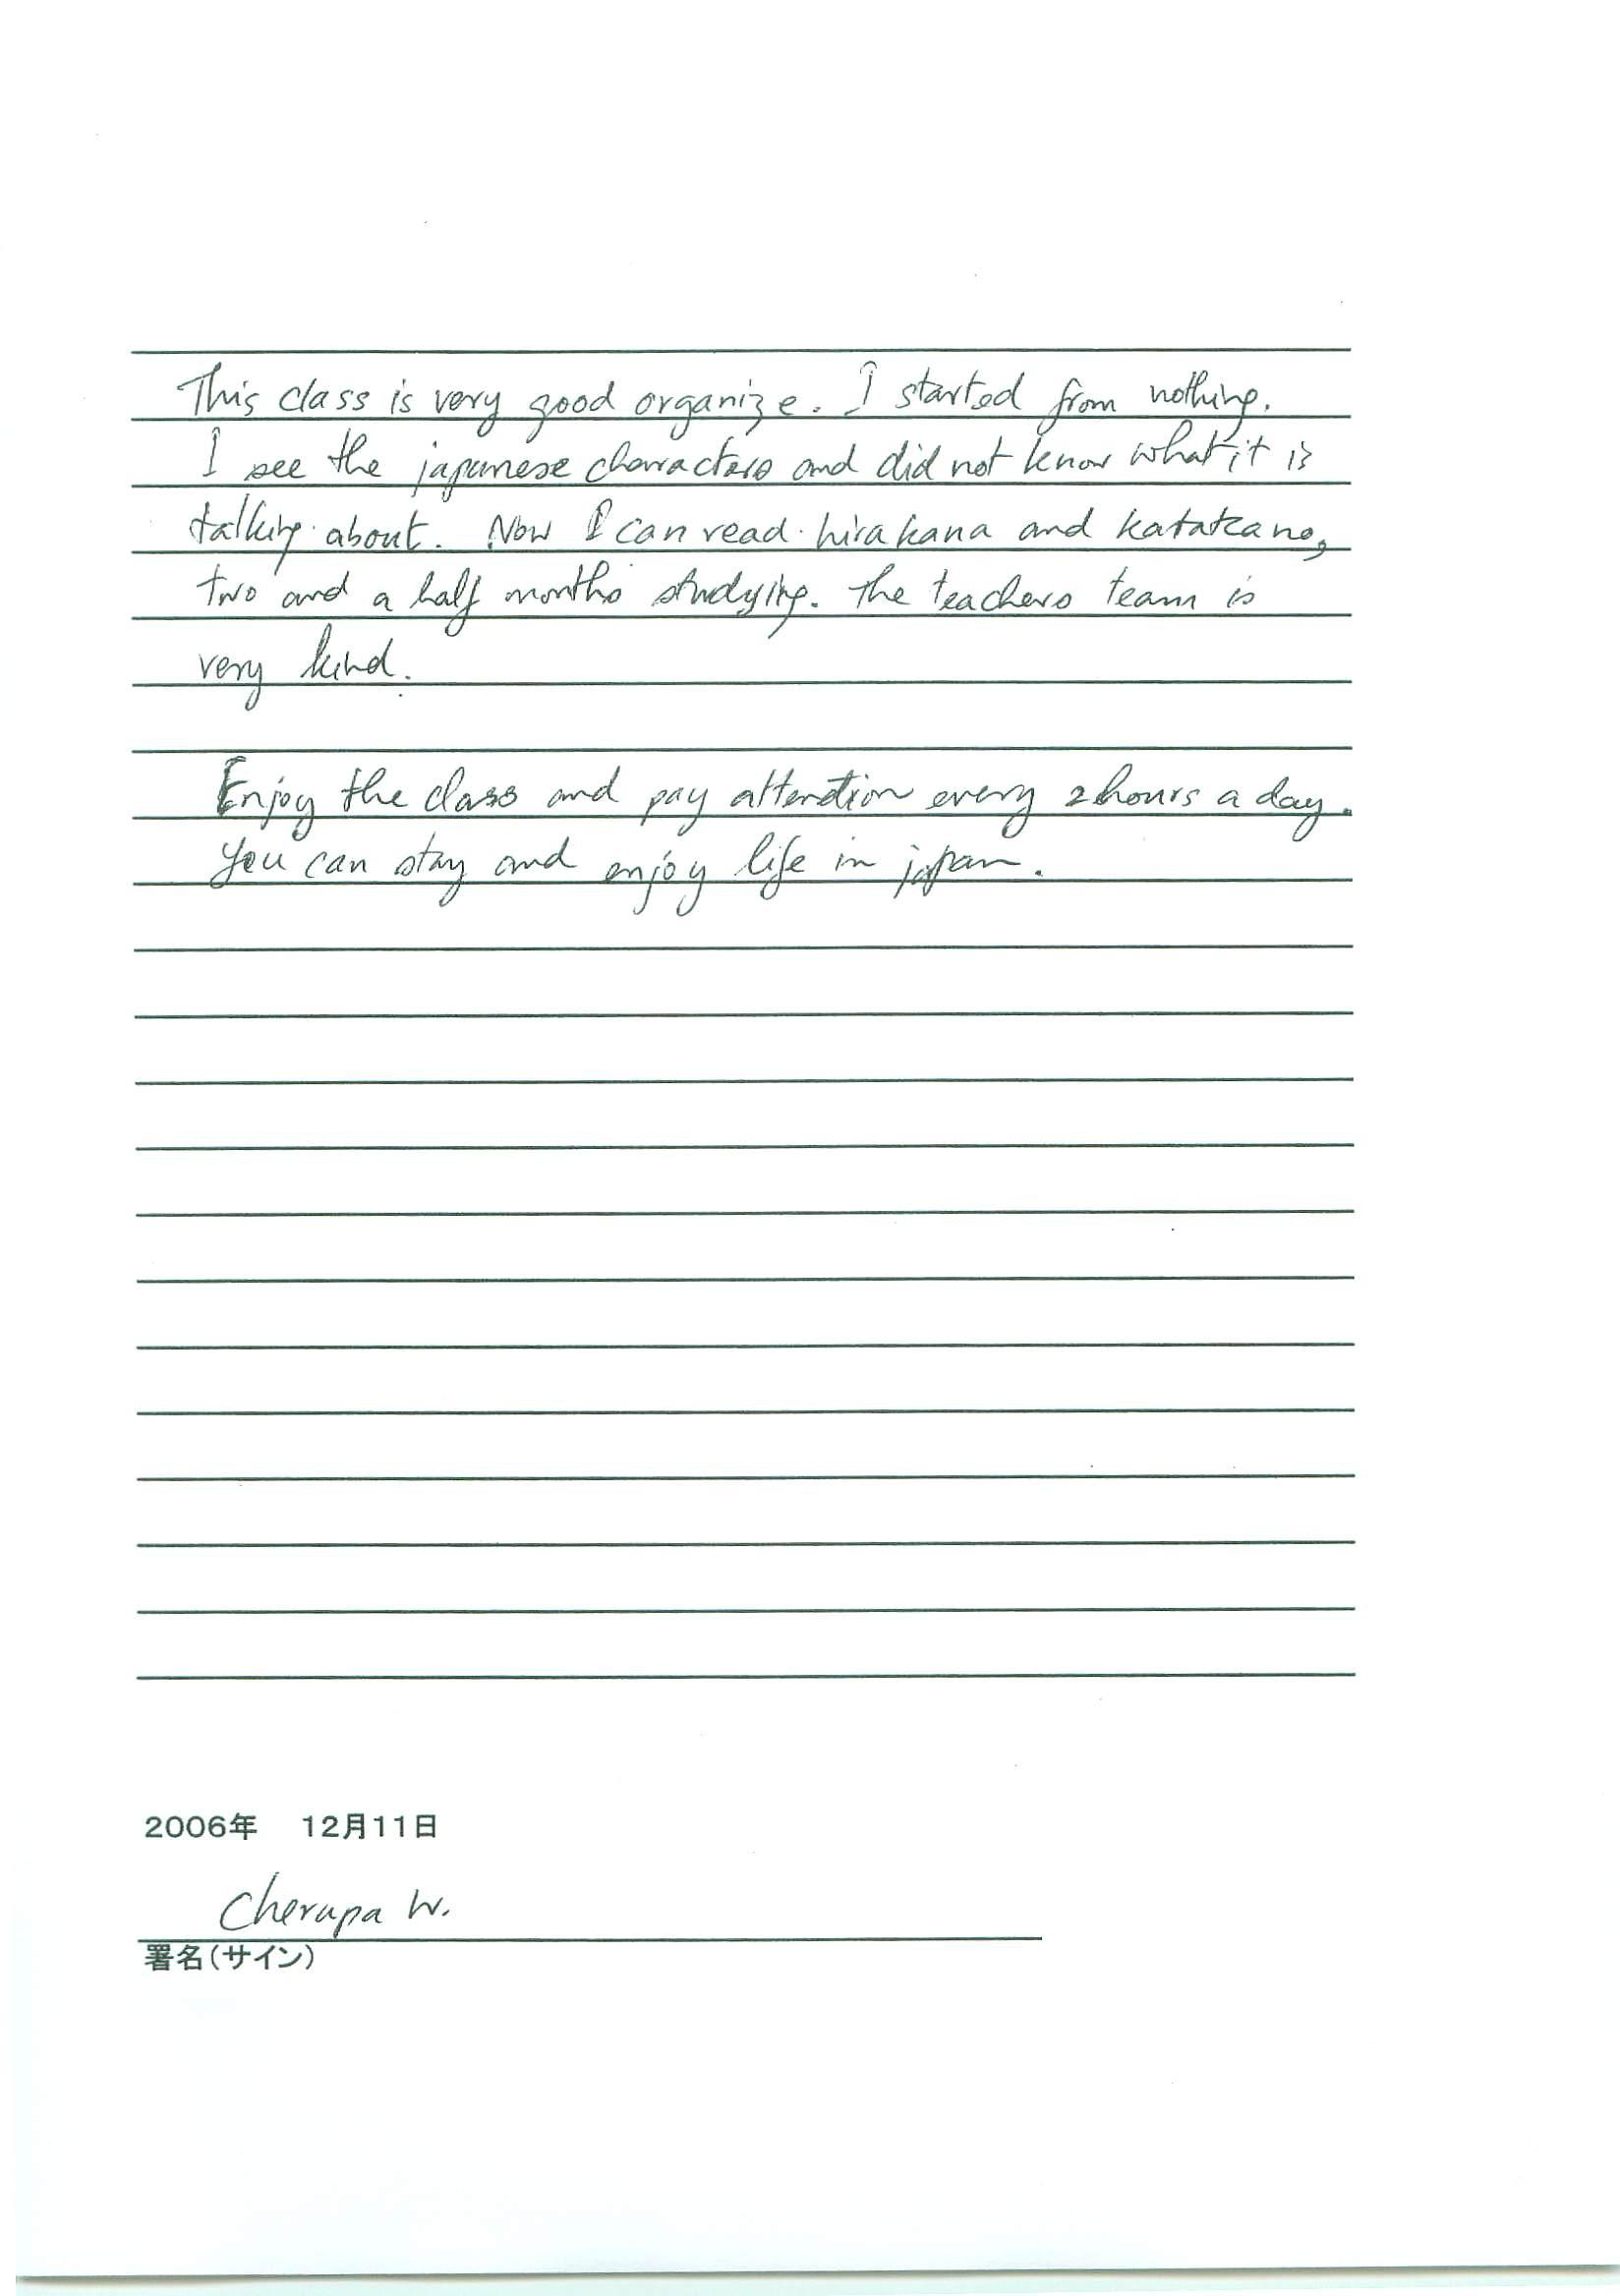 This class is very good organize. I started from nothing.
I see the japanese characters and did not know what it is
talking about. Now I can read hirakana and katakana,
two and a half months studying. The teachers team is
very kind.
Enjoy the class and pay attention every 2 hours a day.
You can stay and enjoy life in japan.
2006年 12月11日
Cherupa W.
署名(サイン)